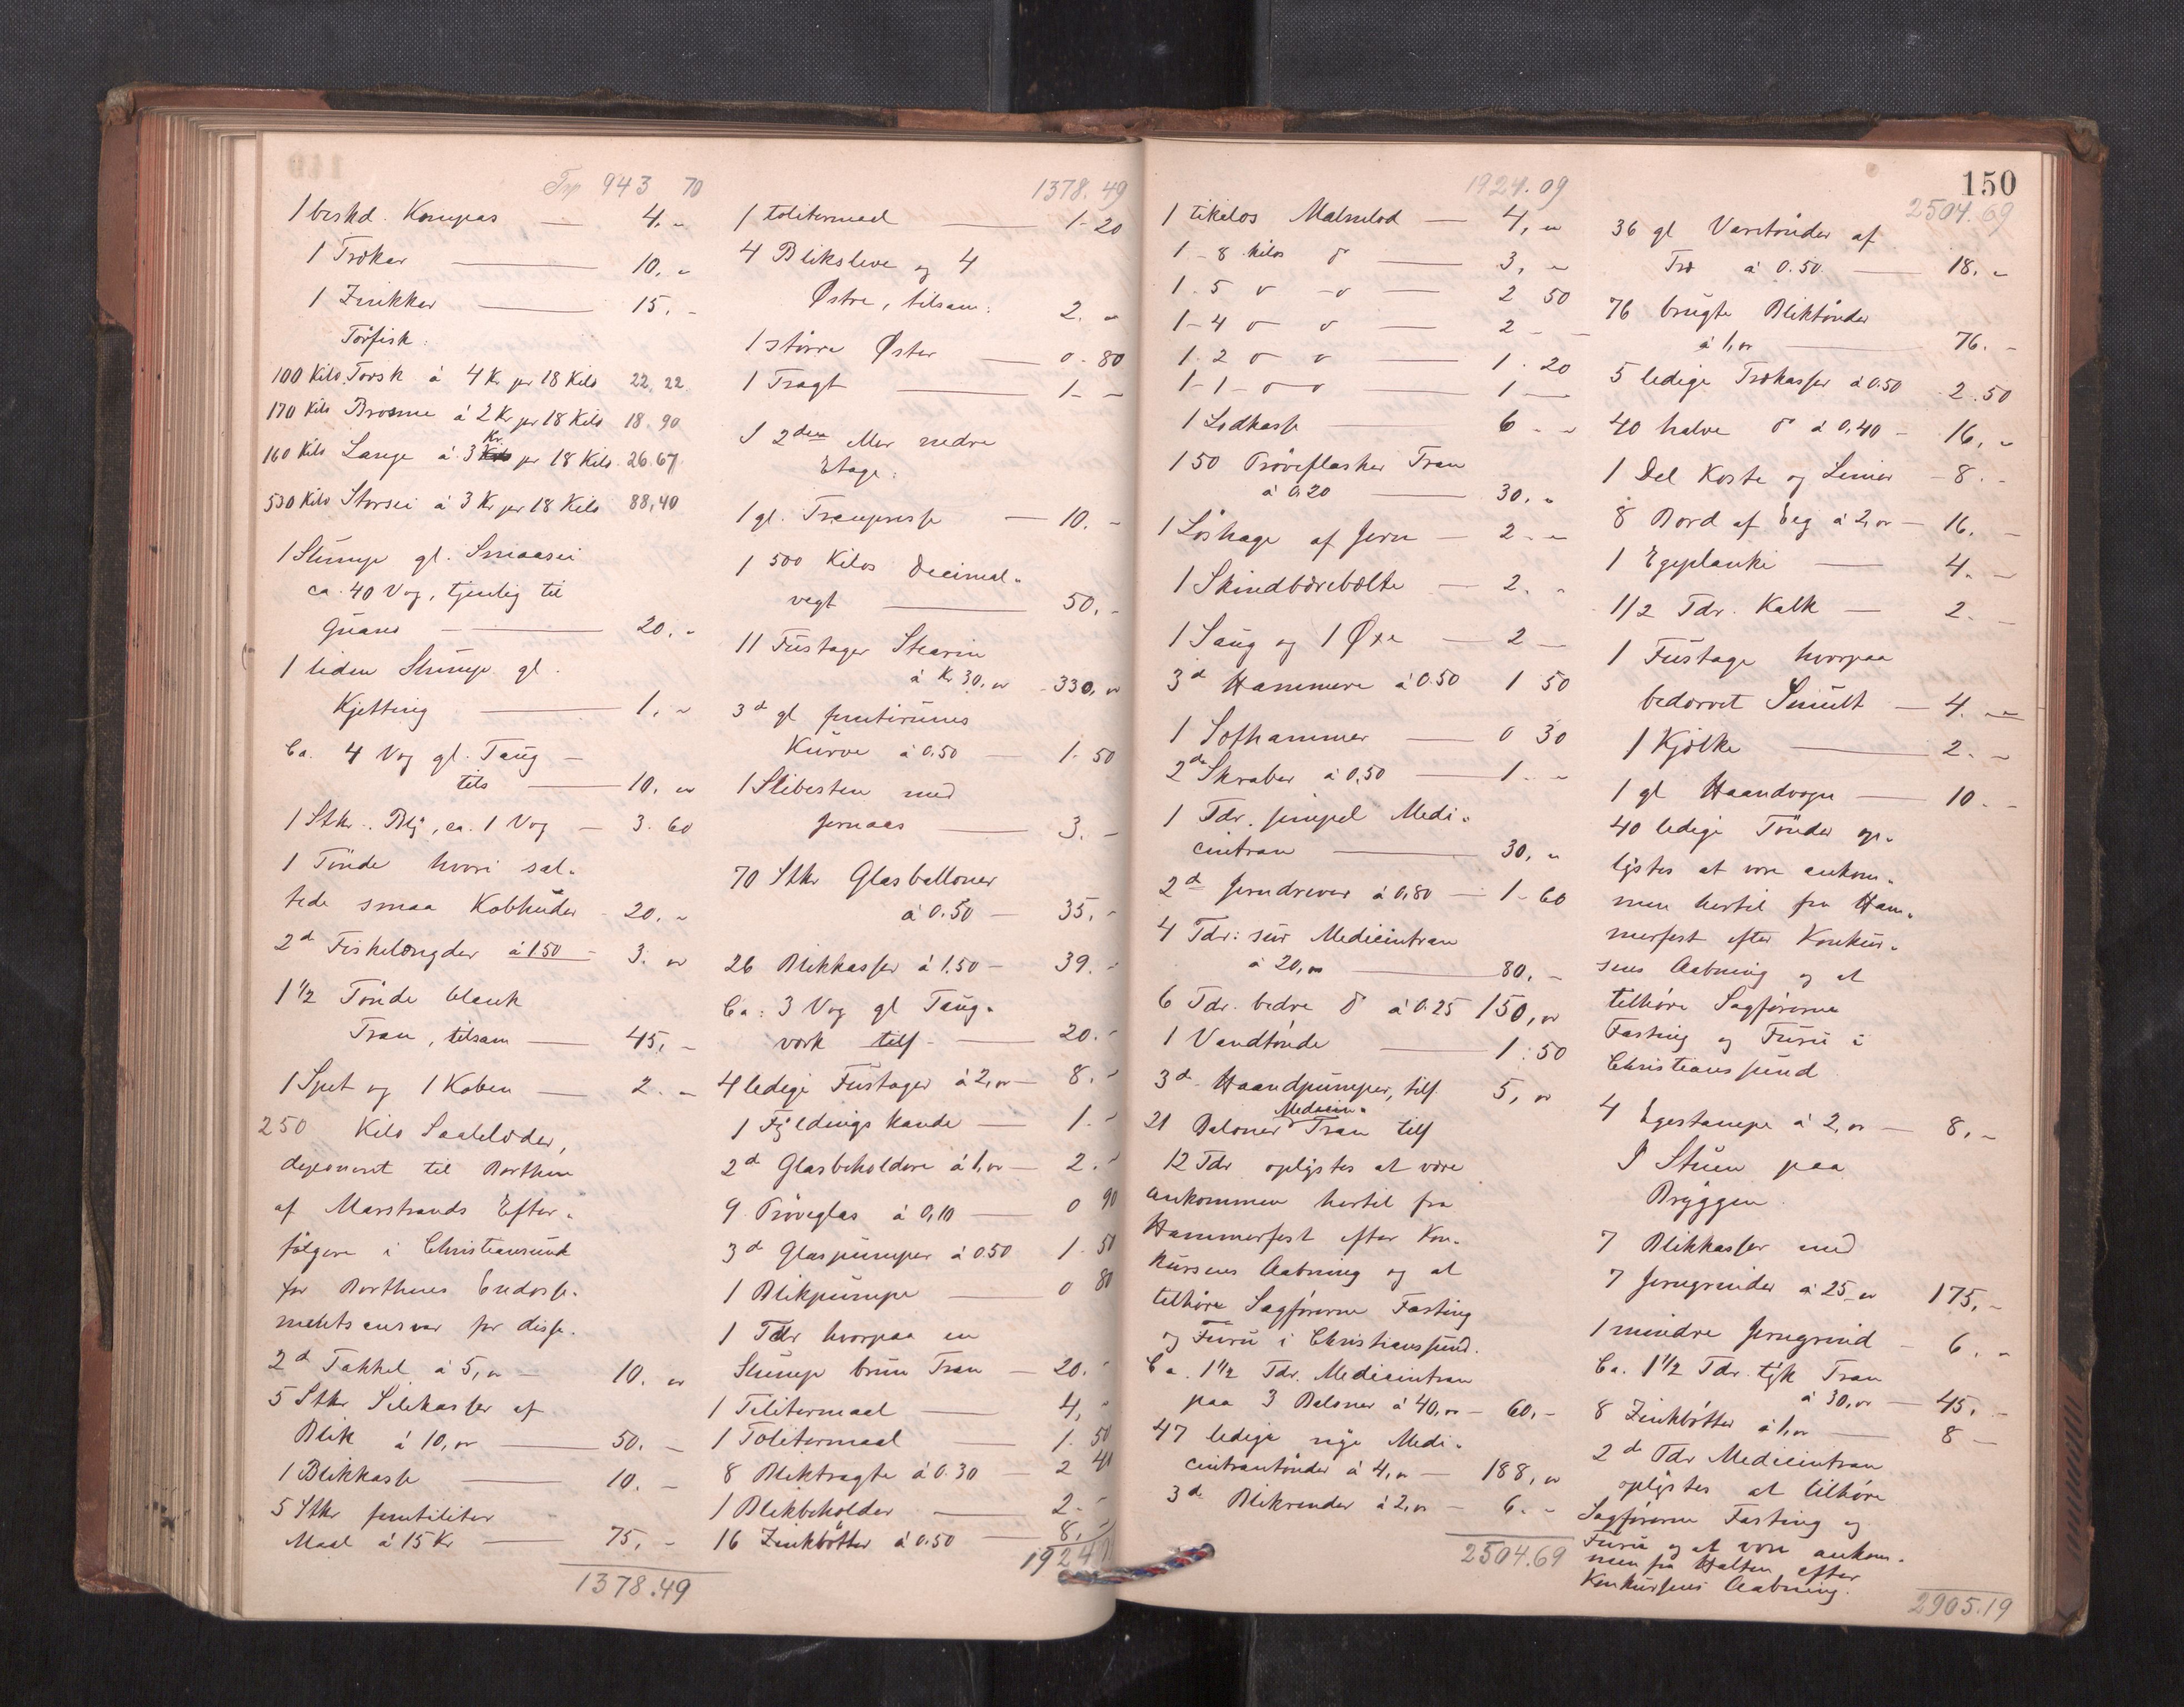 Trp. 943 70
1 beskd. Kompas — 4. "
1 Trækar — 10. "
1 Zinkkar — 15. -
Törfisk:
100 Kilo Torsk á 4 Kr pr 18 Kilo 22.22.
170 Kilo Brosme á 2 Kr pr 18 Kilo 18.90
160 Kilo Lange á 3 Kr. pr 18 Kilo 26.67
530 Kilo Storsei á 3 Kr pr 18 Kilo 88,40
1 Slump gl. Smaasei
ca. 40 Vog, tjenlig til
Guano — 20. "
1 liden Slump gl.
Kjetting — 1, "
Ca. 4 Vog gl. Taug —
tils — 10. "
1 Stkr. Bly, ca. 1 Vog — 3.60
1 Tönde hvori sal-
tede smaa Kobhuder 20. "
2d Fiskelængder á 1.50 - 3. "
1 1/2 Tönde blank
Tran, tilsam — 45, -
1 Spet og 1 Koben — 2. "
250 Kilo Saltelæder,
deponeret til Borthen
af Marstrands Efter-
fölgere i Christiansund
for Borthens Endosse-
mentsansvar for disse.
2d Takkel á 5, " — 10. "
5 Stkr Silekasser af
Blik á 10, " — 50. -
1 Blikkasse — 10. -
5 Stkr femtiliter
Maal á 15 Kr — 75, -
1378.49
1378.49
1 tolitermaal — 1-20
4 Bliksleve og 4
Østre, tilsam: 2. "
1 större Øster — 0-80
1 Tragt — 1- -
I 2den Mer nedre
Etage:
1 gl. Tranpresse — 10. -
1 500 Kilos Decimal-
vegt — 50. -
11 Fustager Stearin
á Kr 30, " - 330, "
3d gl femtirums
Kurve á 0.50 — 1. 50
1 Slibesten med
Jernaas — 3. -
70 Stkr Glasballoner
á 0.50 — 35, -
26 Blikkasser á 1.50 — 39. -
Ca: 3 Vog gl Taug-
værk tils - — 20. -
4 ledige Fustager á 2, " — 8. -
1 Fyldingskande — 1. -
2d Glasbeholdere á 1, " — 2. -
9 Pröveglas á 0,10 — 0 90
3d Glaspumper á 0.50 1. 50
1 Blikpumpe — 0 80
1 Tdr hvorpaa en
Slump brun Tran — 20. -
1 Tilitermaal — 4, -
1 Tolitermaal — 1. 50
8 Bliktragte á 0.30 — 2 40
1 Blikbeholder — 2. -
16 Zinkbötter á 0.50 — 8. -
1924
1924.09
1 tikilos Malmlod — 4, "
1 - 8 kilos do — 3, "
1 - 5 do - do — 2 50
1 - 4 do do — 2 -
1 - 2 do do — 1. 20
1 - 1 - do do — 1 —
1 Lodkasse — 6 - "
150 Pröveflasker Tran
á 0.20 — 30. "
1 Löshage af Jern — 2 - "
1 Skindbærebælte — 2. "
1 Saug og 1 Øxe — 2 —
3d Hammere á 0.50 1 50
1 Lofhammer — 0 30
2de Skraber á 0,50 — 1. "
1 Tdr. simpel Medi-
cintran — 30, "
2d Jerndrever á 0,80 — 1-60
4 Tdr: sur Medicintran
á 20, " — 80, -
6 Tdr. bedre do á 0.25 150, "
1 Vandtönde — 1.50
3d Haandpumper, tils. 5, "
21 Baloner Medicin-Tran tils
12 Tdr oplystes at være
ankommen hertil fra
Hammerfest efter Kon-
kursens Aabning og at
tilhöre Sagförerne Fasting
og Furu i Christianssund.
Ca. 1 1/2 Tdr. Medicintran
paa 3 Baloner á 40, " — 60, -
47 ledige nye Medi-
cintrantönder á 4, " — 188, "
3de Blikrender á 2, " — 6. -
2504.69
150
2504.69
36 gl Varetönder af
Træ á 0.50. — 18. "
76 brugte Bliktönder
á 1, " — 76. -
5 ledige Trækasser á 0.50 2.50
40 halve do á 0,40 - 16, "
1 Del Koste og Limer - 8. -
8 Bord af Eeg á 2, " — 16. -
1 Egeplanke — 4. -
1/2 Tdr. Kalk — 2. -
1 Fustage hvorpaa
bedærvet Smult — 4. -
1 Kjælke — 2. -
1 gl Haandvogn — 10. -
40 ledige Tönder op-
lystes at være ankom-
men hertil fra Ham-
merfest efter Konkur-
sens Aabning og at
tilhöre Sagförerne
Fasting og Furu i
Christianssund
4 Egestampe á 2, " — 8, -
I Stuen paa
Bryggen.
7 Blikkasser med
7 Jerngrinder á 25 " 175, -
1 mindre Jerngrind - 6. "
Ca. 1 1/2 Tdr. tyk Tran
á 30, " — 45, -
8 Zinkbötter á 1, " — 8 -
2de Tdr Medicintran
oplystes at tilhöre
Sagförerne Fasting og
Furu og at være ankom-
men fra Halten efter
Konkursens Aabning.
2905.19